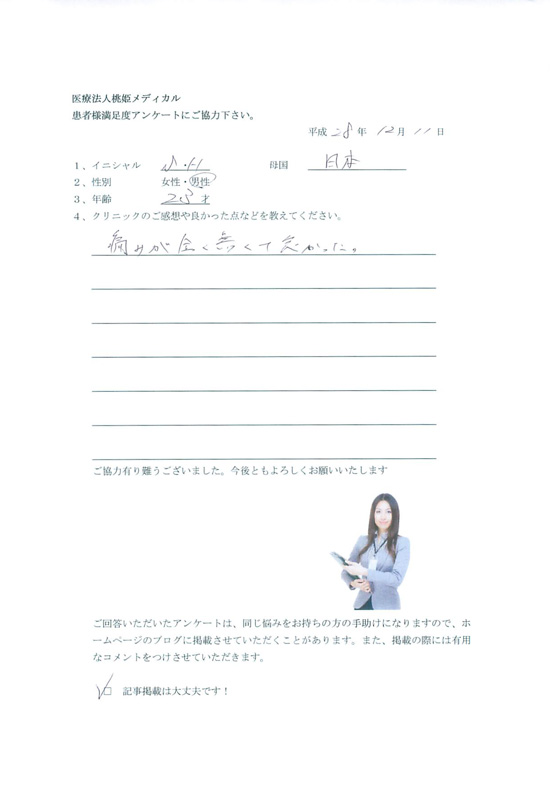 医療法人桃姫メディカル
患者様満足度アンケートにご協力下さい。
平成 28 年 12 月 11 日
1、イニシャル 母国 日本
2、性別 女性・男性
3、年齢 才
4、クリニックのご感想や良かった点などを教えてください。
痛みが全く無くて良かった。
ご協力有り難うございました。今後ともよろしくお願いいたします
ご回答いただいたアンケートは、同じ悩みをお持ちの方の手助けになりますので、ホ
ームページのブログに掲載させていただくことがあります。また、掲載の際には有用
なコメントをつけさせていただきます。
記事掲載は大丈夫です！